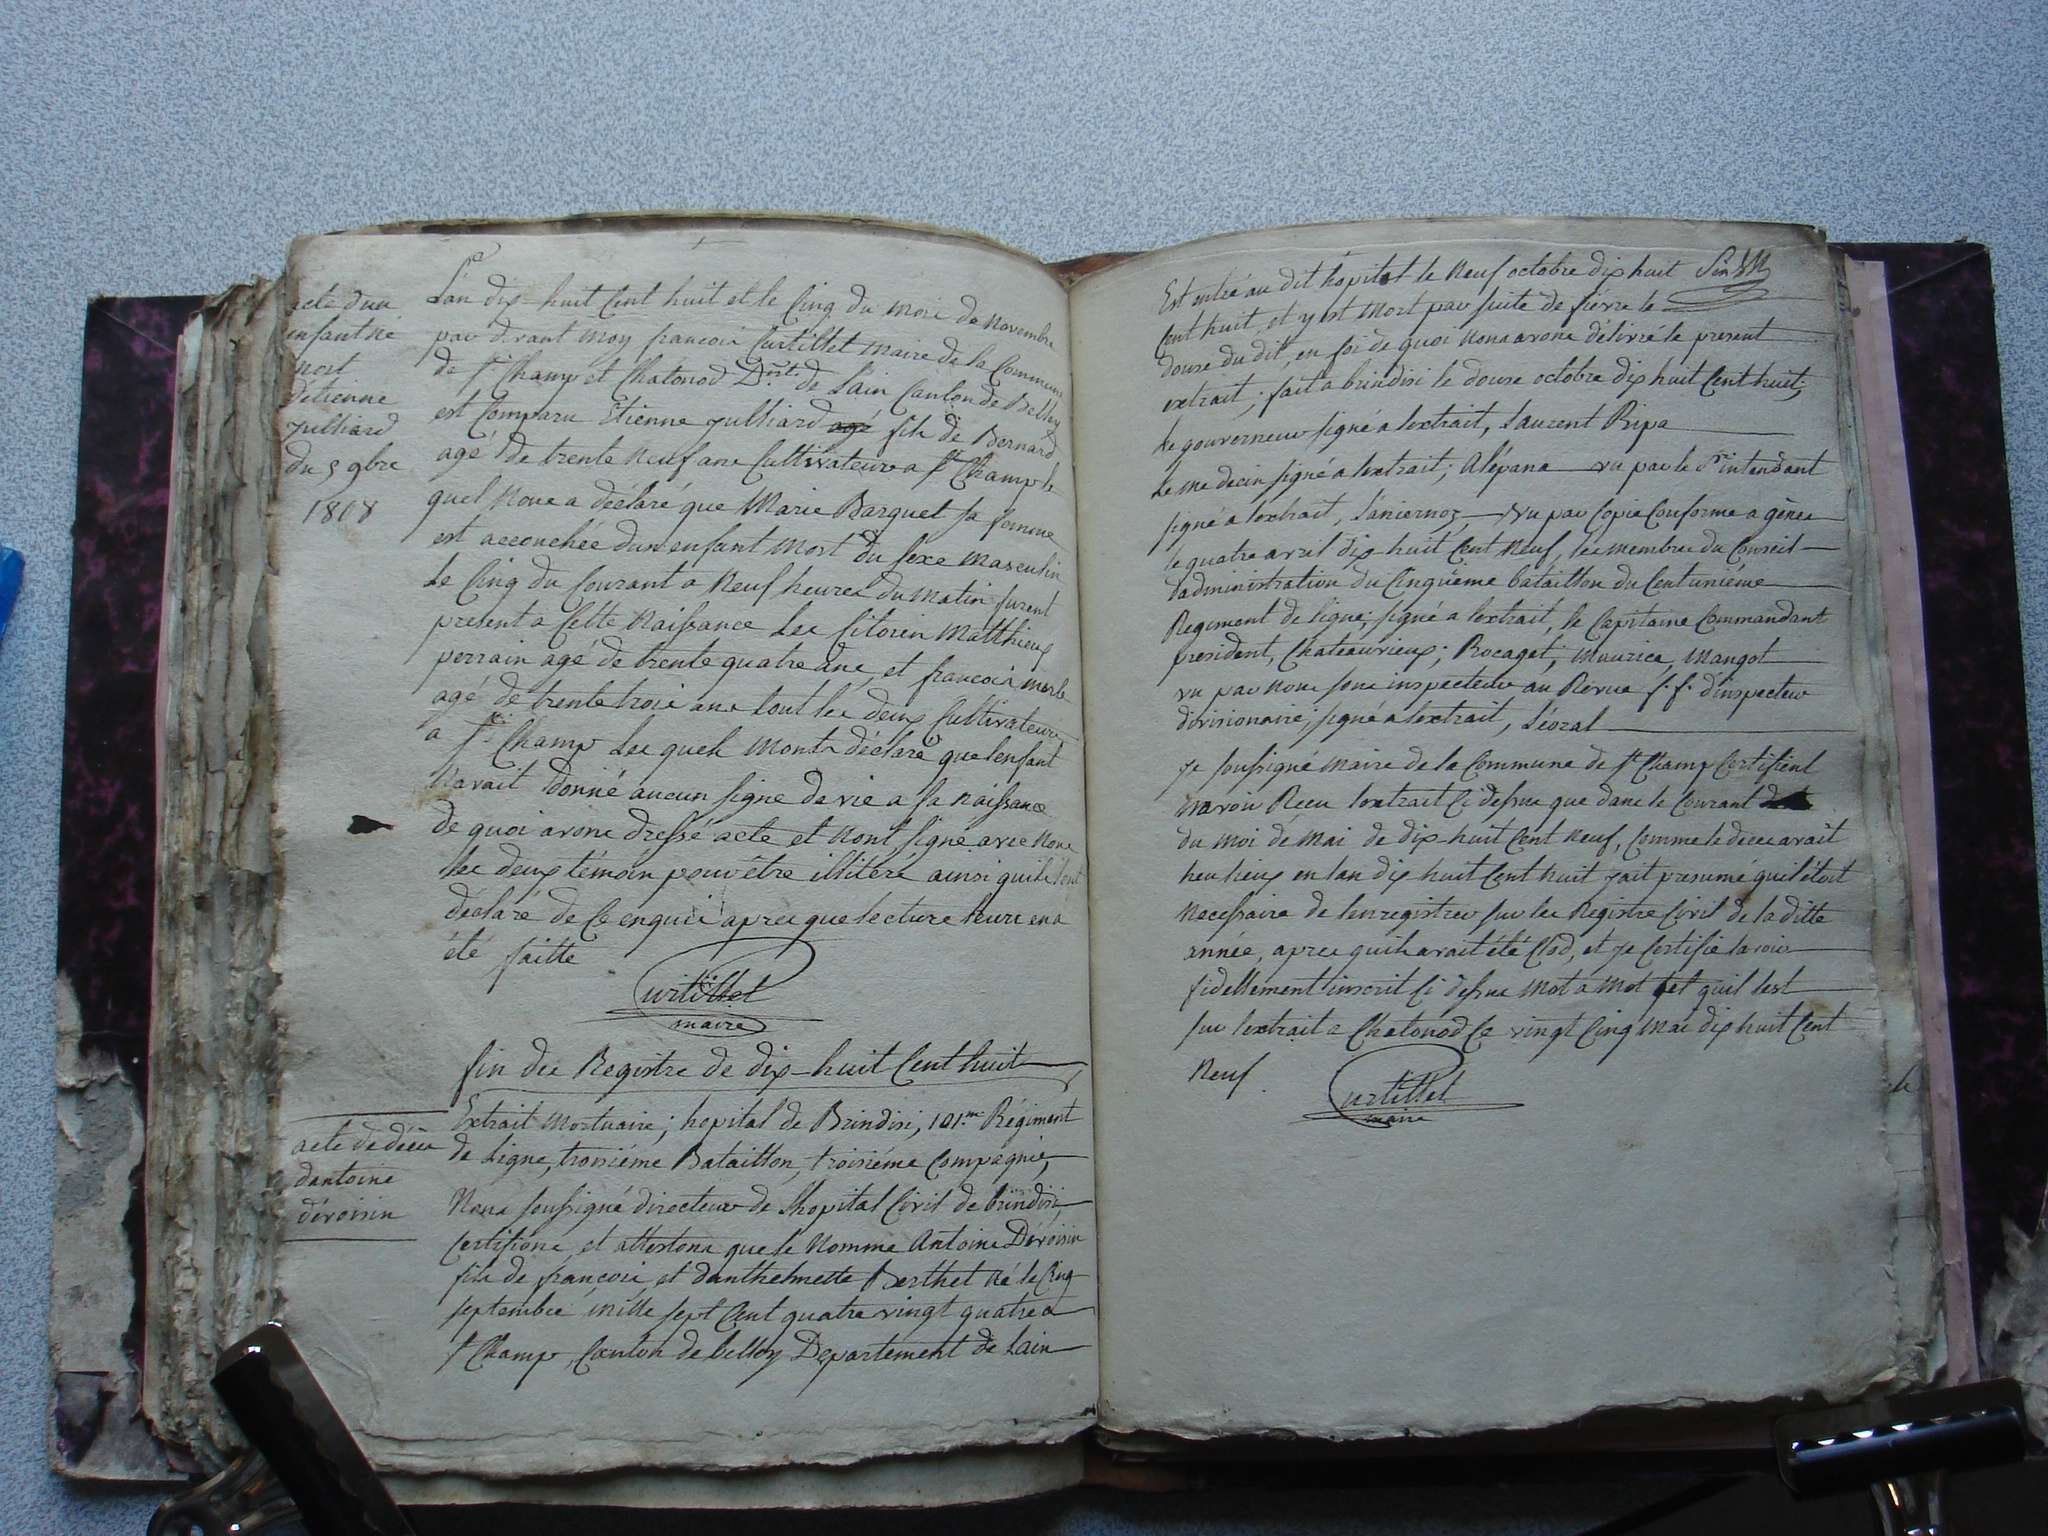 acte dun
enfant né
mort
détienne
julliard
du 5 9bre
1808
L'an dix-huit Cent huit et le Cinq du mois de novembre
par devant moy françois Curtillet maire de la Commune
de St Champ et Chatonod Dmt de Lain Canton de Belley
est Comparu Etienne julliard agé fils de Bernard
agé de trente neuf ans Cultivateur a St Champ le
quel nous a déclaré que Marie Barquet sa femme
est accouchée dun enfant mort du sexe masculin
le Cinq du Courant a neuf heures du matin furent
present a Cette naissance les Citoien Matthieux
perrain agé de trente quatre ans, et françois merle
agé de trente trois ans tout les deux Cultivateurs
a St Champ Les quels mont déclaré que lenfant
navait donné aucun signe de vie a sa naissance
de quoi avons dressé acte et nont signé avec nous
les deux témoin pour être illitéré ainsi quils lont
déclaré de Ce enquis apres que lecture leurs en a
été faitte
Curtillet
maire
fin des Registre de dix-huit Cent huit
acte de décès
dantoine
dévoisin
Extrait Mortuaire; hopital de Brindisi, 101.me Régiment
de Ligne, troisiéme Bataillon, troisiéme Compagnie,
Nous soussigné directeur de lhopital Civil de brindisi,
Certifions, et attestons que le nommé Antoine Dévoisin
fils de françois, et danthelmette Berthet né le Cinq
septembre mille sept Cent quatre vingt quatre a
St Champ, Canton de belley Departement de Lain
Est entré au dit hopital le neuf octobre dix huit
Cent huit, et y est mort par suite de fiévre le
douse du dit, en foi de quoi nous avons délivré le present
extrait; fait a brindisi le douse octobre dix huit Cent huit;
Le gouverneur signé a lextrait, Laurent Ripa
Le medecin signé a lextrait; Alépana vu par le Sr intendant
signé a lextrait, Laniernoz, vu par Copie Conforme a gènes
le quatre avril dix-huit Cent neuf, les membres du Conseil
dadministration du Cinquième bataillon du Centuniéme
Regiment de ligne; signé a lextrait, le Capitaine Commandant
president, Chateauvieux; Rocagel; Maurice, Mangot
vu par nous sous inspecteur au Revue f. f. d'inspecteur
divisionaire; signé a lextrait, Léoral
je soussigné maire de la Commune de St Champ Certifient
mavoir Recu lextrait Ci dessus que dans le Courant
du moi de Mai de dix-huit Cent neuf, Comme le deces avait
heu lieux en lan dix huit Cent huit jait presumé quil étoit
necessaire de lenregistrer sur les Registre Civil de la ditte
année, apres quils avait été Clod, et je Certifie lavoir
fidellement inscrit Ci dessus mot a mot tel quil lest
sur lextrait a Chatonod Ce vingt Cinq Mai dix huit Cent
neuf
Curtillet
maire